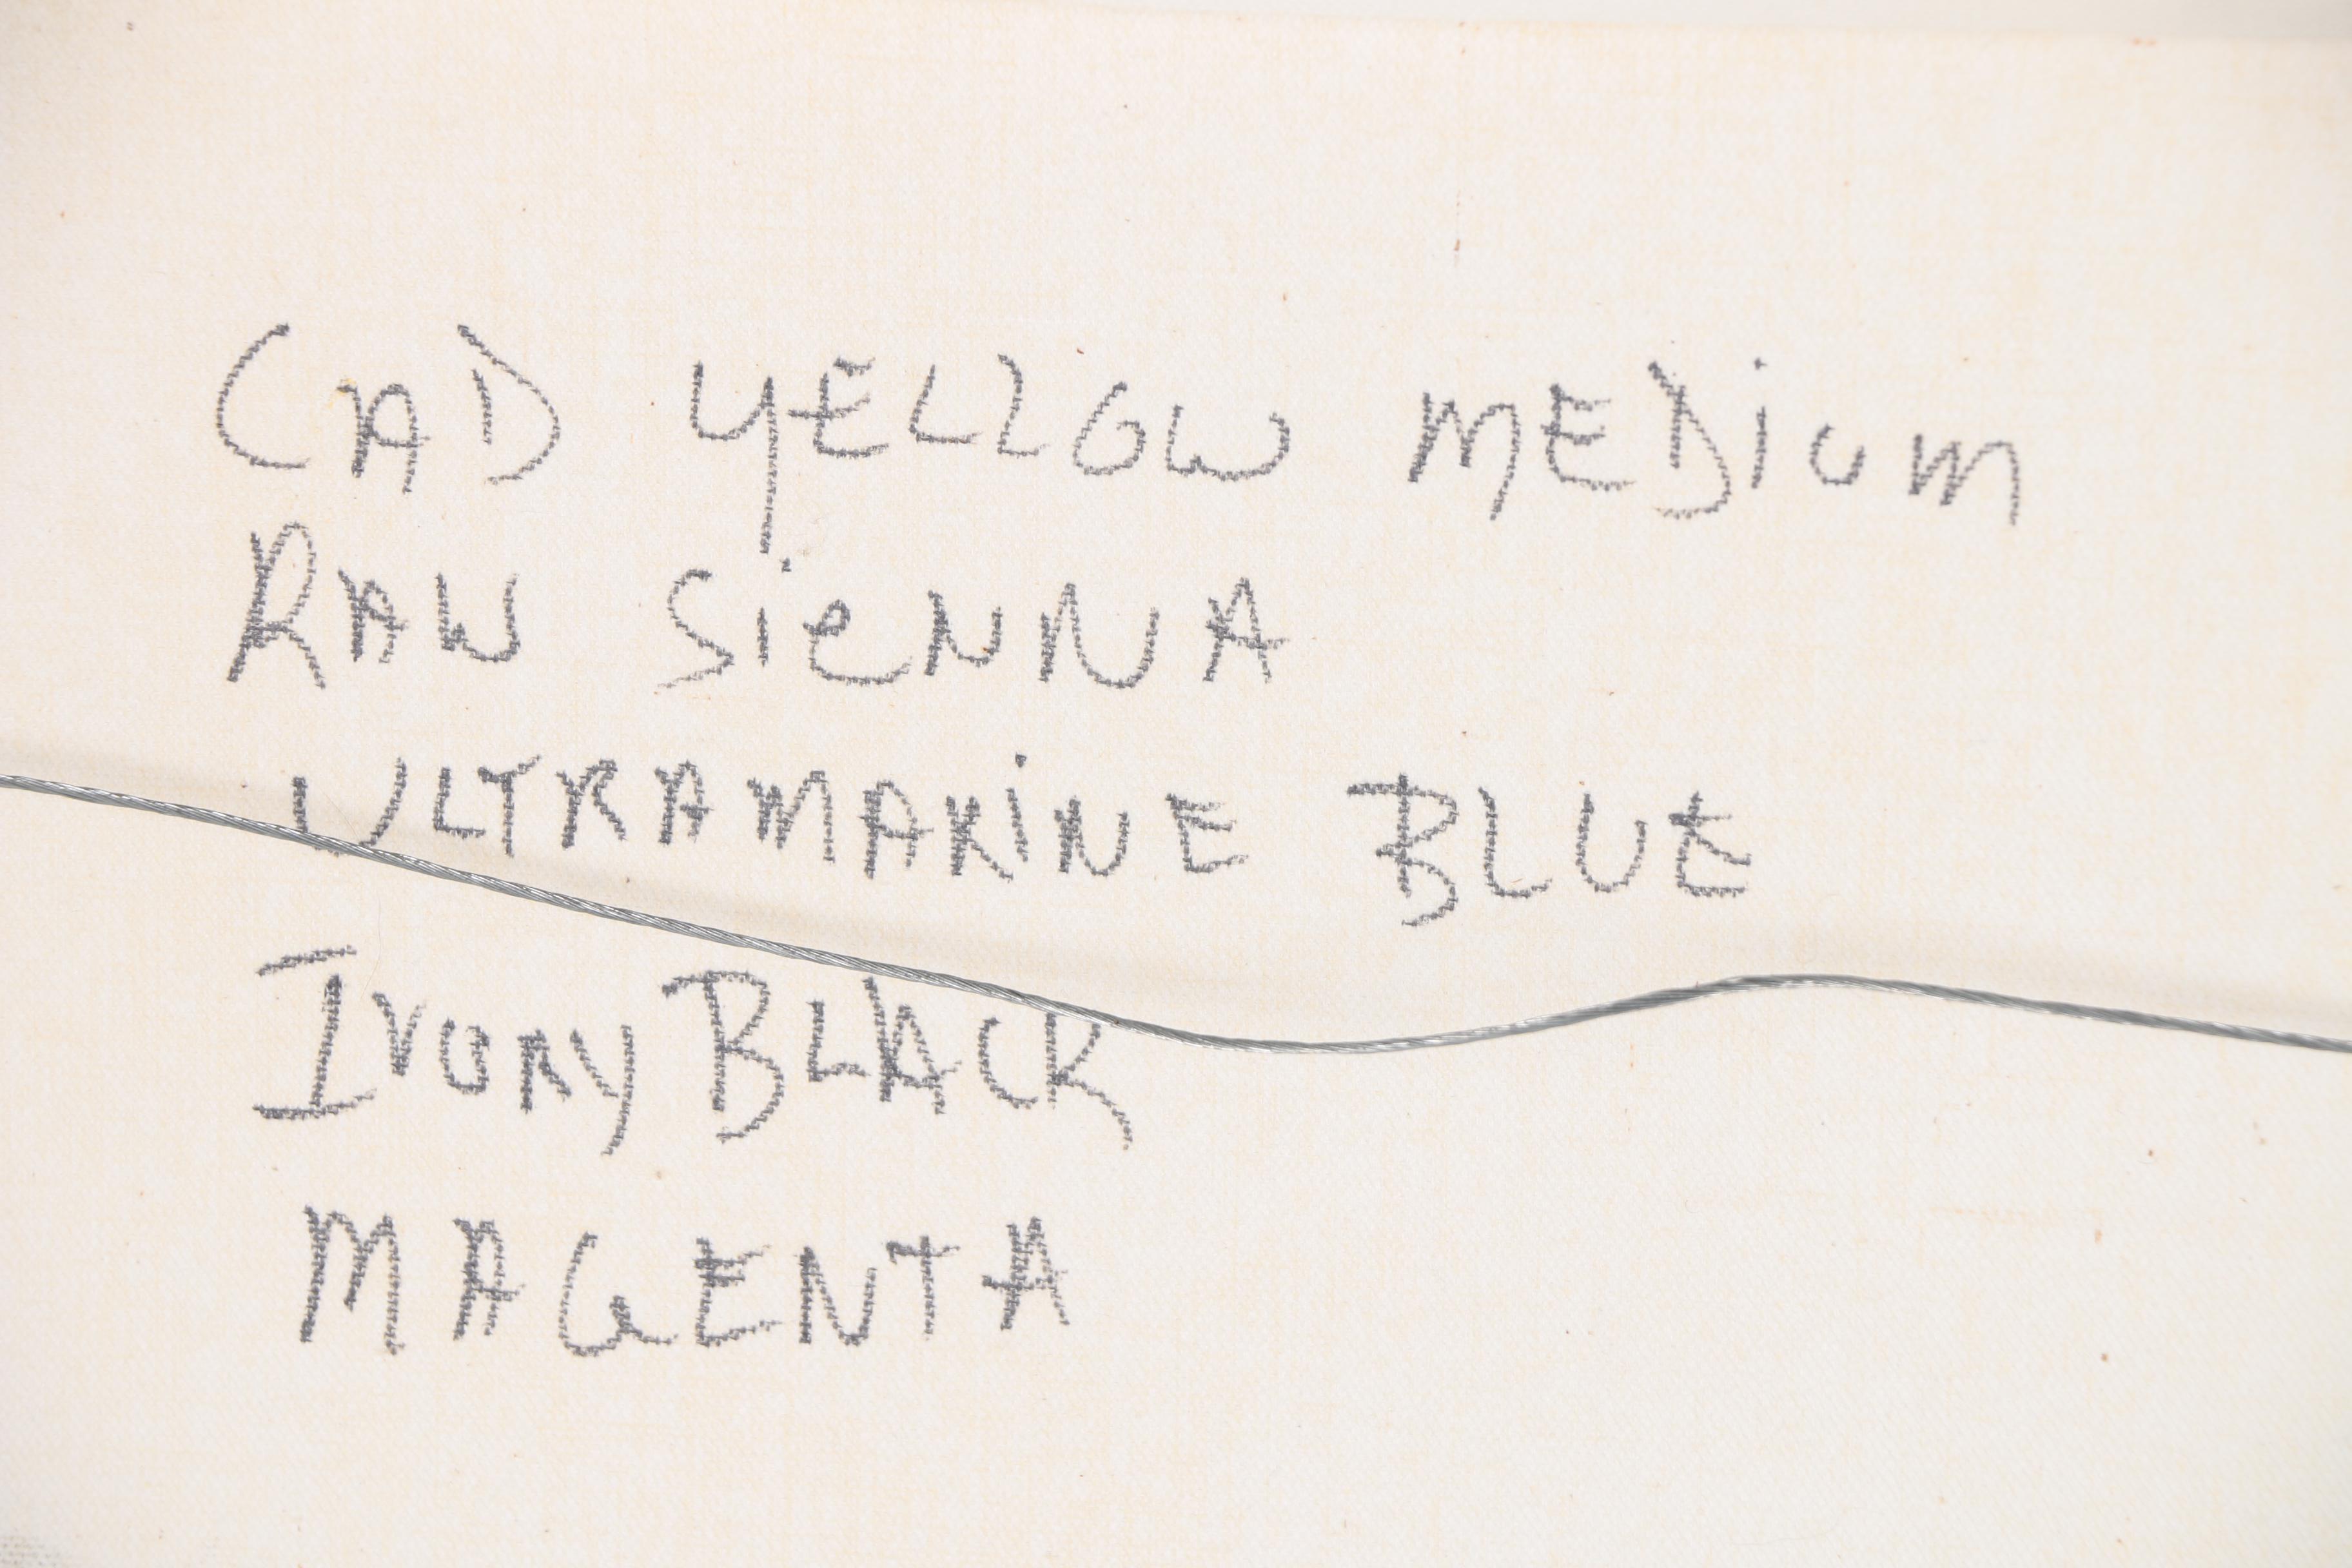 CAD YELLOW MEDiUM
RAW SieNNA
ULTRAMARiNE BLUE
IVORY BLACK
MAGENTA